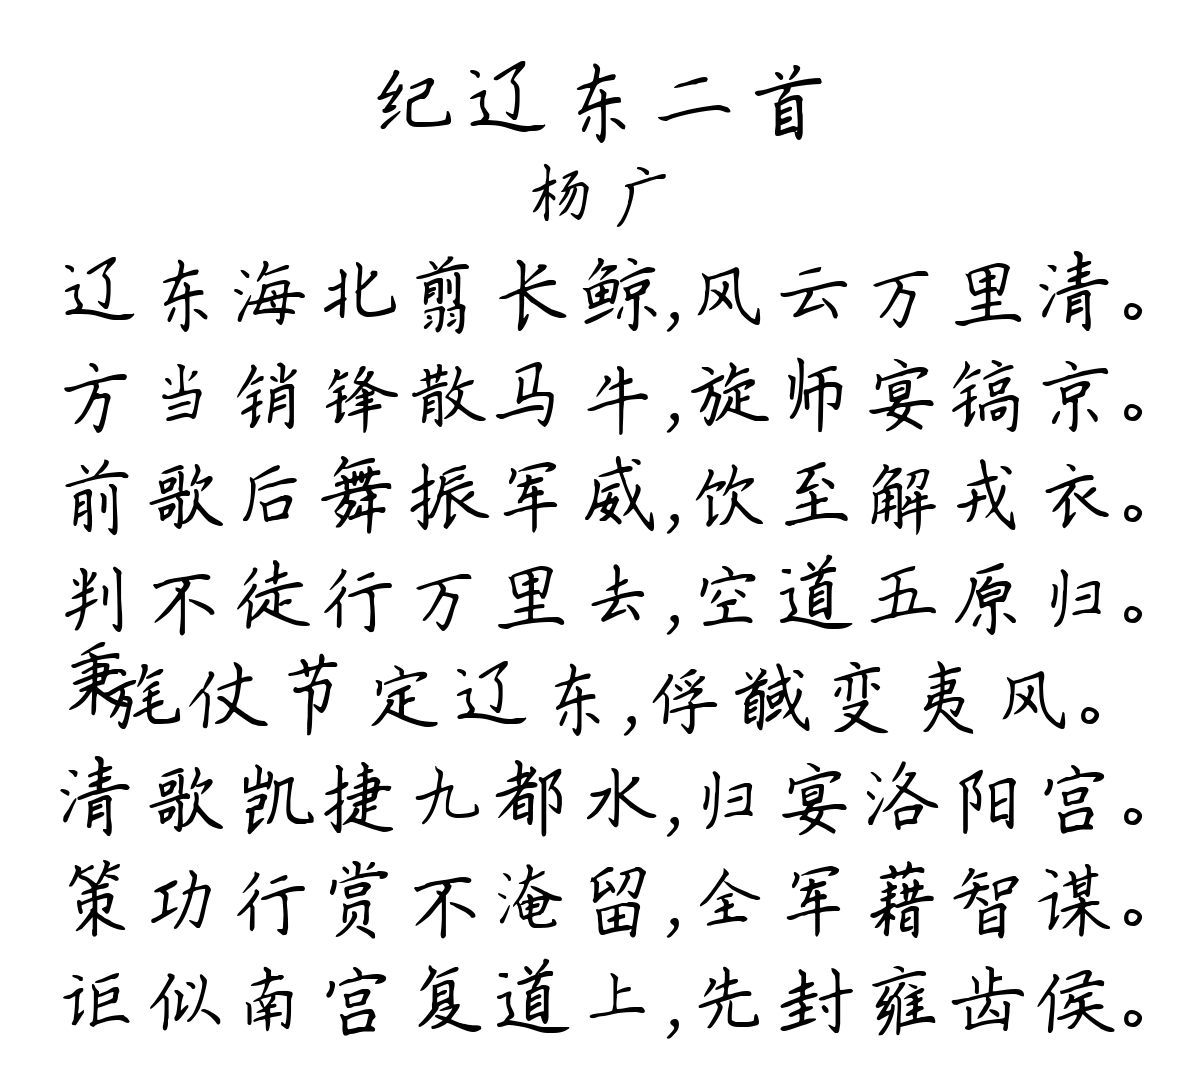 纪辽东二首
杨广
辽东海北翦长鲸,风云万里清。
方当销锋散马牛,旋师宴镐京。
前歌后舞振军威,饮至解戎衣。
判不徒行万里去,空道五原归。
秉旄仗节定辽东,俘馘变夷风。
清歌凯捷九都水,归宴洛阳宫。
策功行赏不淹留,全军藉智谋。
讵似南宫复道上,先封雍齿侯。